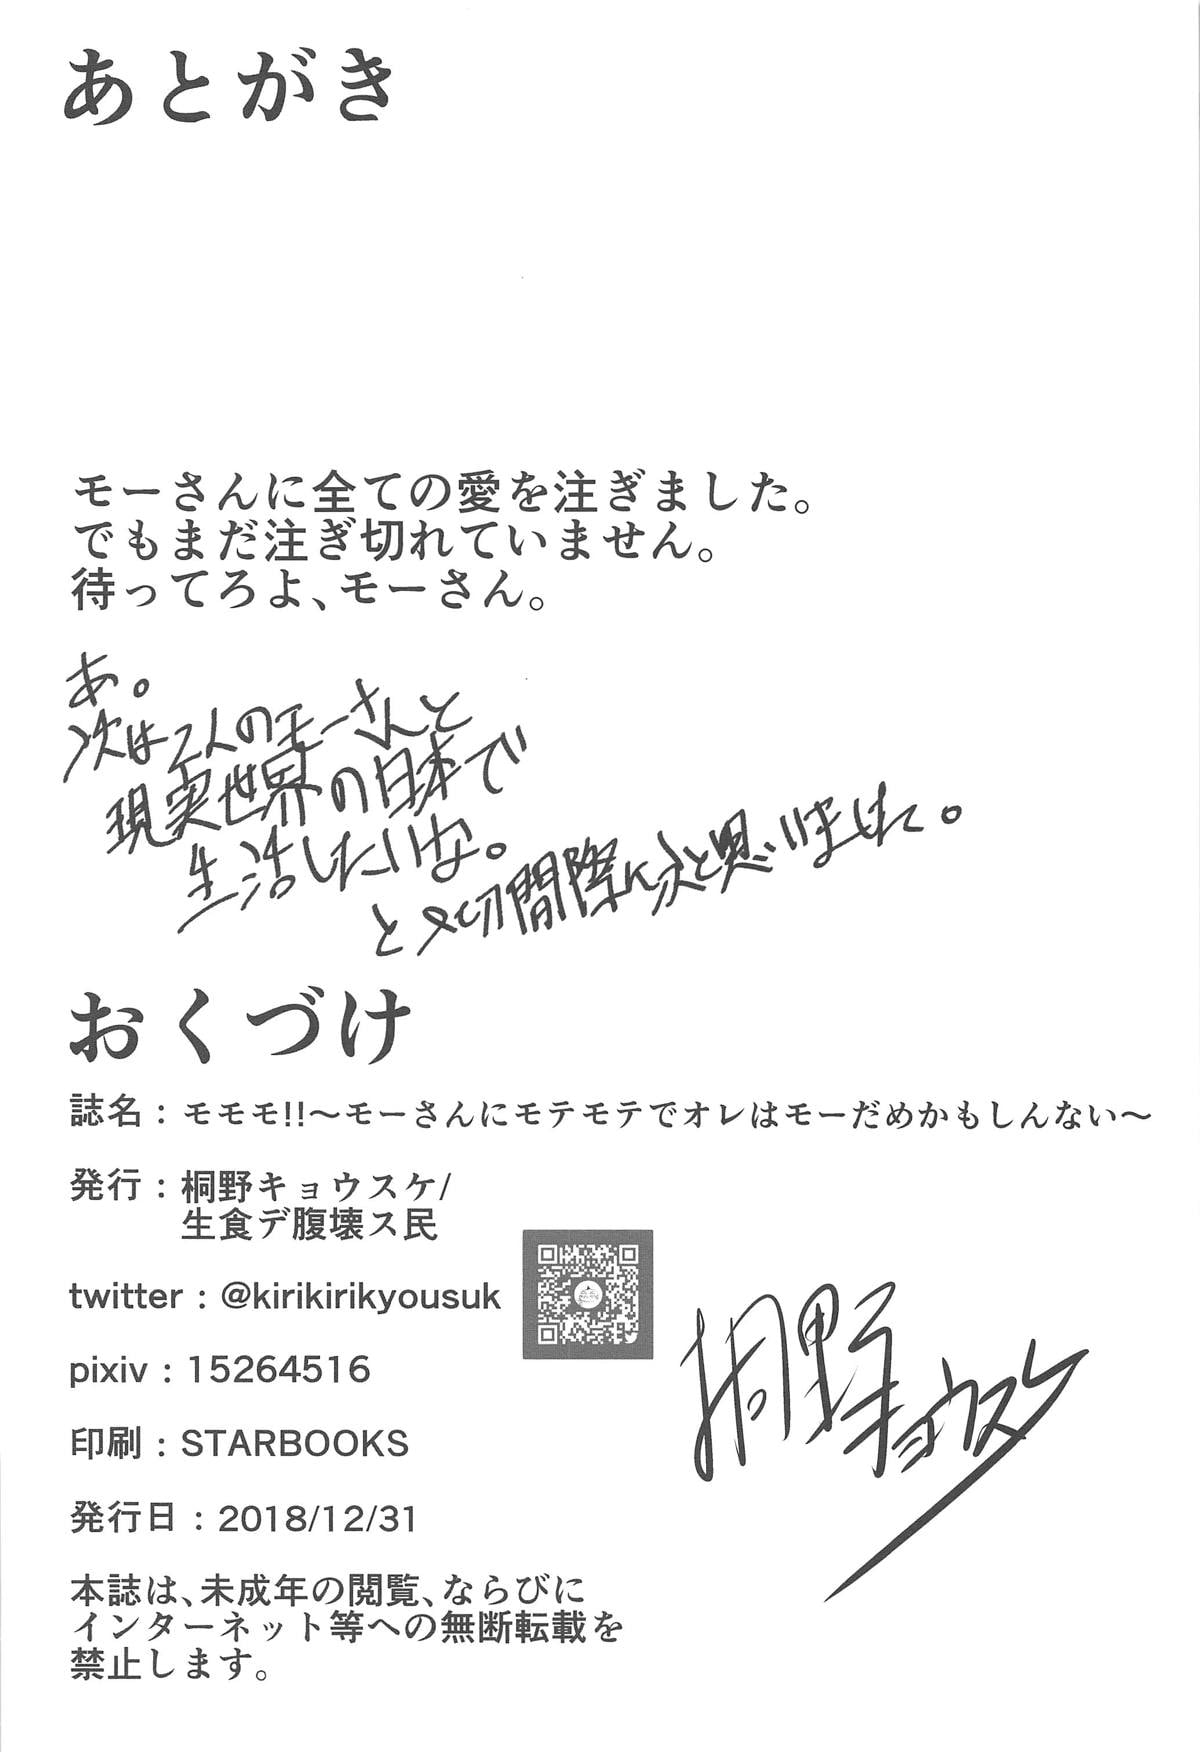 あとがき
モーさんに全ての愛を注ぎました。
でもまだ注ぎ切れていません。
待ってろよ、モーさん。
あ。
次は2人のモーさんと
現実世界の日本で
生活したいな。
と〆切間際にふと思いました。
おくづけ
誌名：モモモ!!～モーさんにモテモテでオレはモーだめかもしんない～
発行：桐野キョウスケ/
生食デ腹壊ス民
twitter：@kirikirikyousuk
pixiv：15264516
印刷：STARBOOKS
発行日：2018/12/31
本誌は、未成年の閲覧、ならびに
インターネット等への無断転載を
禁止します。
桐野キョウスケ